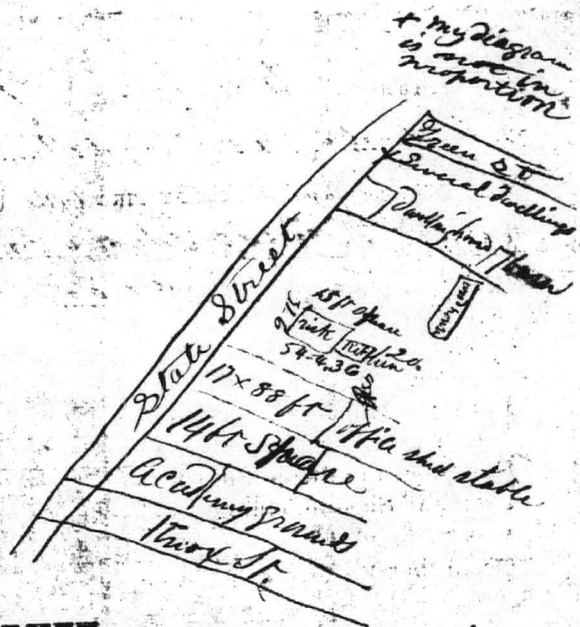 + my diagram
is not in
proportion
Green St
Several dwellings
Dwelling house
State Street
45 ft square
risk Kitchen 20
17 x 88 ft office shed stable
14 ft Square
Academy grounds
Knox St.